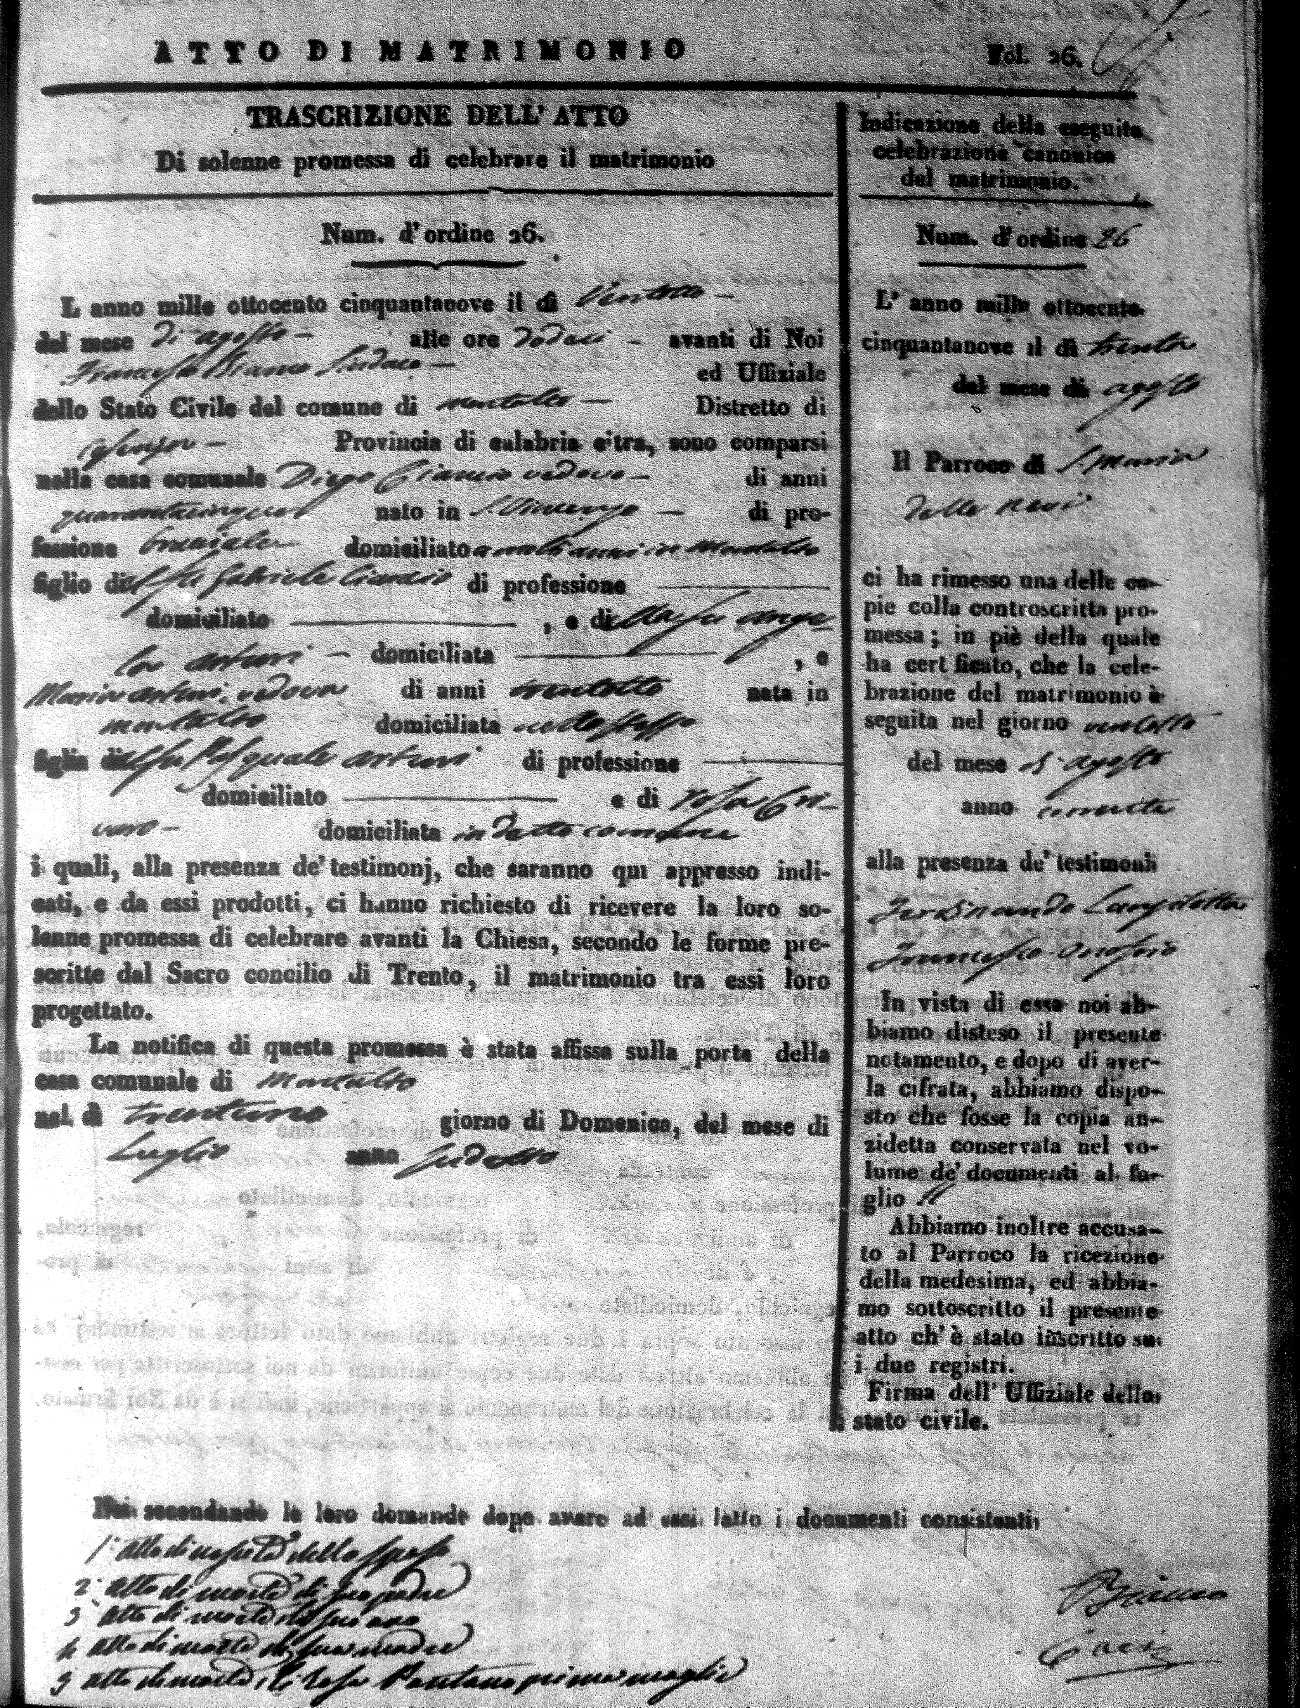 ATTO DI MATRIMONIO
Fol. 26.
TRASCRIZIONE DELL' ATTO
Di solenne promessa di celebrare il matrimonio
Num. d'ordine 26.
L anno mille ottocento cinquantanove il dì Ventotto
del mese di agosto alle ore dodeci avanti di Noi
Francesco Bianco Sindaco ed Uffiziale
dello Stato Civile del comune di montalto Distretto di
Cosenza Provincia di calabria citra, sono comparsi
nella casa comunale Diego Ciancio vedovo di anni
quarantacinque nato in S. Vincenzo di pro-
fessione bracciale domiciliato a molti anni in Montalto
figlio di Gabriele Ciancio di professione
domiciliato , e di
Arturi domiciliata , e
Maria Arturi vedova di anni trentotto nata in
montalto domiciliata nello stesso
figlia di Pasquale Arturi di professione
domiciliato e di Rosa
domiciliata in detto comune
i quali, alla presenza de' testimonj, che saranno qui appresso indi-
cati, e da essi prodotti, ci hanno richiesto di ricevere la loro so-
lenne promessa di celebrare avanti la Chiesa, secondo le forme pre-
scritte dal Sacro concilio di Trento, il matrimonio tra essi loro
progettato.
La notifica di questa promessa è stata affissa sulla porta della
casa comunale di Montalto
nel dì trentuno giorno di Domenica, del mese di
Luglio anno sudetto
Indicazione della eseguita
celebrazione canonica
del matrimonio.
Num. d'ordine 26
L' anno mille ottocento
cinquantanove il dì trenta
del mese di agosto
Il Parroco di S. Maria
della neve
ci ha rimesso una delle co-
pie colla controscritta pro-
messa; in piè della quale
ha cert ficato, che la cele-
brazione del matrimonio è
seguita nel giorno ventotto
del mese di agosto
anno corrente
alla presenza de' testimonii
Ferdinando
Francesco
In vista di essa noi ab-
biamo disteso il presente
notamento, e dopo di aver-
la cifrata, abbiamo dispo-
sto che fosse la copia an-
zidetta conservata nel vo-
lume de' documenti al fo-
glio
Abbiamo inoltre accusa-
to al Parroco la ricezione
della medesima, ed abbia-
mo sottoscritto il presente
atto ch' è stato inscritto su
i due registri.
Firma dell' Uffiziale dello
stato civile.
Noi secondando le loro domande dopo avere ad essi letto i documenti consistenti
1° atto di nascita dello sposo
2° atto di morte di suo padre
3° atto di morte del suo avo
4 atto di morte di sua madre
5 atto di morte di Rosa Pantano prima moglie
Bianco